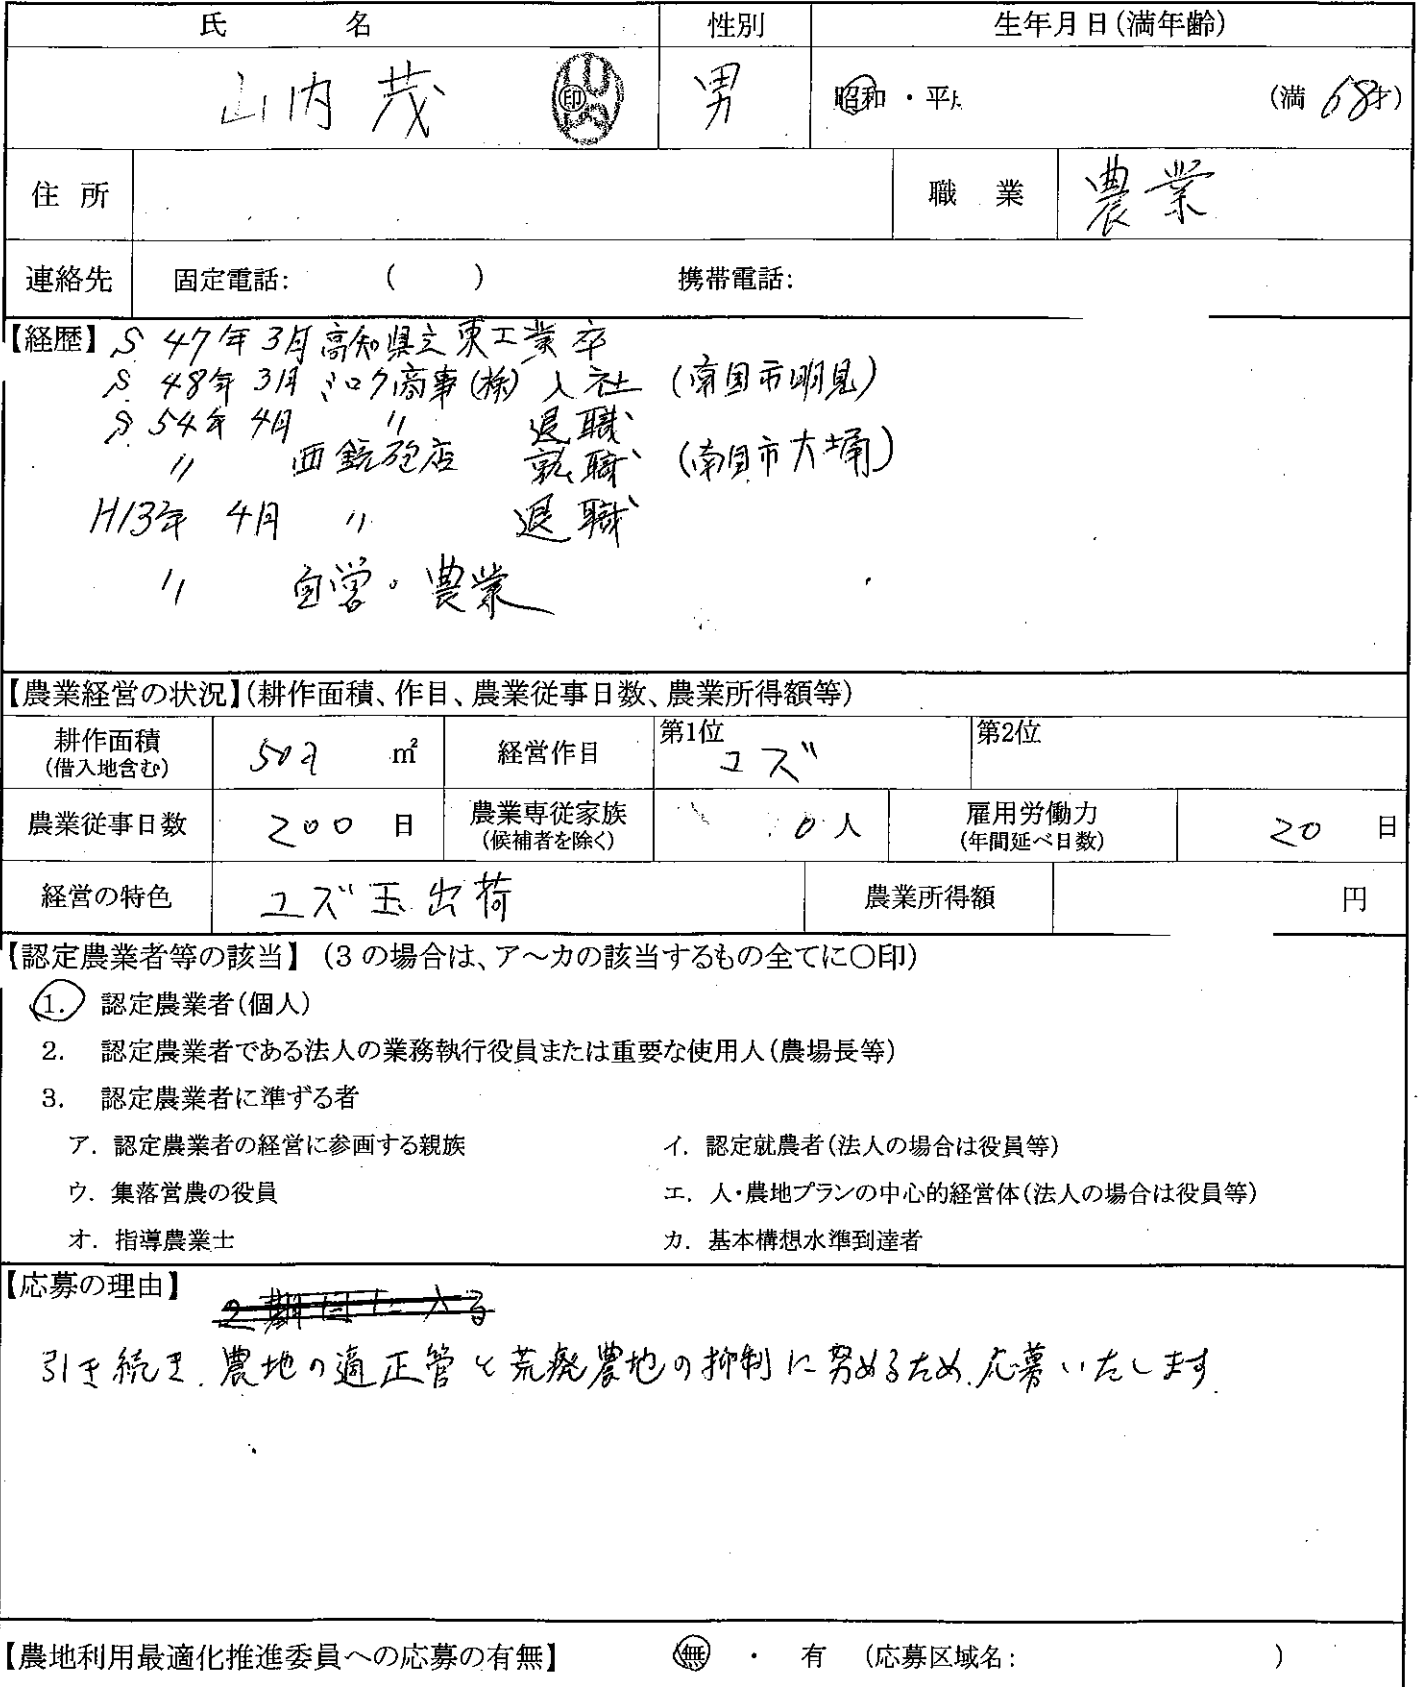 氏 名 性別 生年月日(満年齢)
山内 茂 印 男 昭和 ・ 平 (満 68才)
住 所 職 業 農業
連絡先 固定電話: ( ) 携帯電話:
【経歴】 S 47年 3月 高知県立東工業 卒
S 48年 3月 ミロク商事(株) 入社 (南国市明見)
S 54年 4月 〃 退職
〃 西銃砲店 就職 (南国市大埇)
H13年 4月 〃 退職
〃 自営・農業
【農業経営の状況】(耕作面積、作目、農業従事日数、農業所得額等)
耕作面積 (借入地含む) 50a ㎡ 経営作目 第1位 ユズ 第2位
農業従事日数 200 日 農業専従家族 (候補者を除く) 0人 雇用労働力 (年間延べ日数) 20 日
経営の特色 ユズ玉出荷 農業所得額 円
【認定農業者等の該当】 (3 の場合は、ア～カの該当するもの全てに○印)
1. 認定農業者(個人)
2. 認定農業者である法人の業務執行役員または重要な使用人(農場長等)
3. 認定農業者に準ずる者
ア. 認定農業者の経営に参画する親族 イ. 認定就農者(法人の場合は役員等)
ウ. 集落営農の役員 エ. 人・農地プランの中心的経営体(法人の場合は役員等)
オ. 指導農業士 カ. 基本構想水準到達者
【応募の理由】
2期目に入る
引き続き、農地の適正管と荒廃農地の抑制に努めるため、応募いたします
【農地利用最適化推進委員への応募の有無】 無 ・ 有 (応募区域名: )